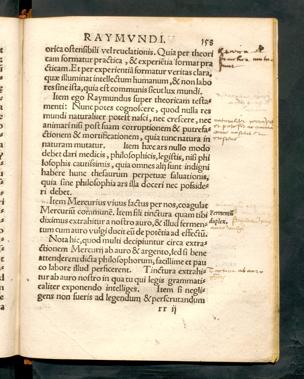 RAYMVNDI. 158
orica ostensibili vel reuelationis. Quia per theori
cam formatur practica, & experiẽtia format pra
cticam. Et per experientiã formatur veritas clara,
quæ illuminat intellectum humanum, & non labo
res sine ista, quia est communis sicut lux mundi.
Item ego Raymundus super theoricam testa-
menti: Nunc potes cognoscere, quod nulla res
mundi naturaliter poteit nasci, nec crescere, nec
animari nisi post suam corruptionem & putrefa-
ctionem & mortificationem, quia tunc natura in
naturam mutatur. Item hæc ars nullo modo
debet dari medicis, philosophicis, legistis, nisi phi
losophis castissimis, quia omnes alij sunt indigni
habere hunc thesaurum perpetuæ saluationis,
quia sine philosophia ars illa doceri nec posside-
ri debet.
Item Mercurius viuus factus per nos, coagulat
Mercuriũ communẽ. Item sit tinctura quam tibi
diximus extrahitur a nostro auro, & illud fermen-
tum cum auro vulgi ducit eũ de potẽtia ad effectũ.
Nota hic, quod multi decipiuntur circa extra-
ctionem Mercurij ab auro & argento, sed si bene
attenderent dicta philosophorum, facillime et pau
co labore illud perficerent. Tinctura extrahi-
tur ab auro nostro in qua tu qui legis grammati-
caliter exponendo intelliges. Item si negli-
gens non fueris ad legendum & perscrutandum
rr ij
Fermentũ
duplex.